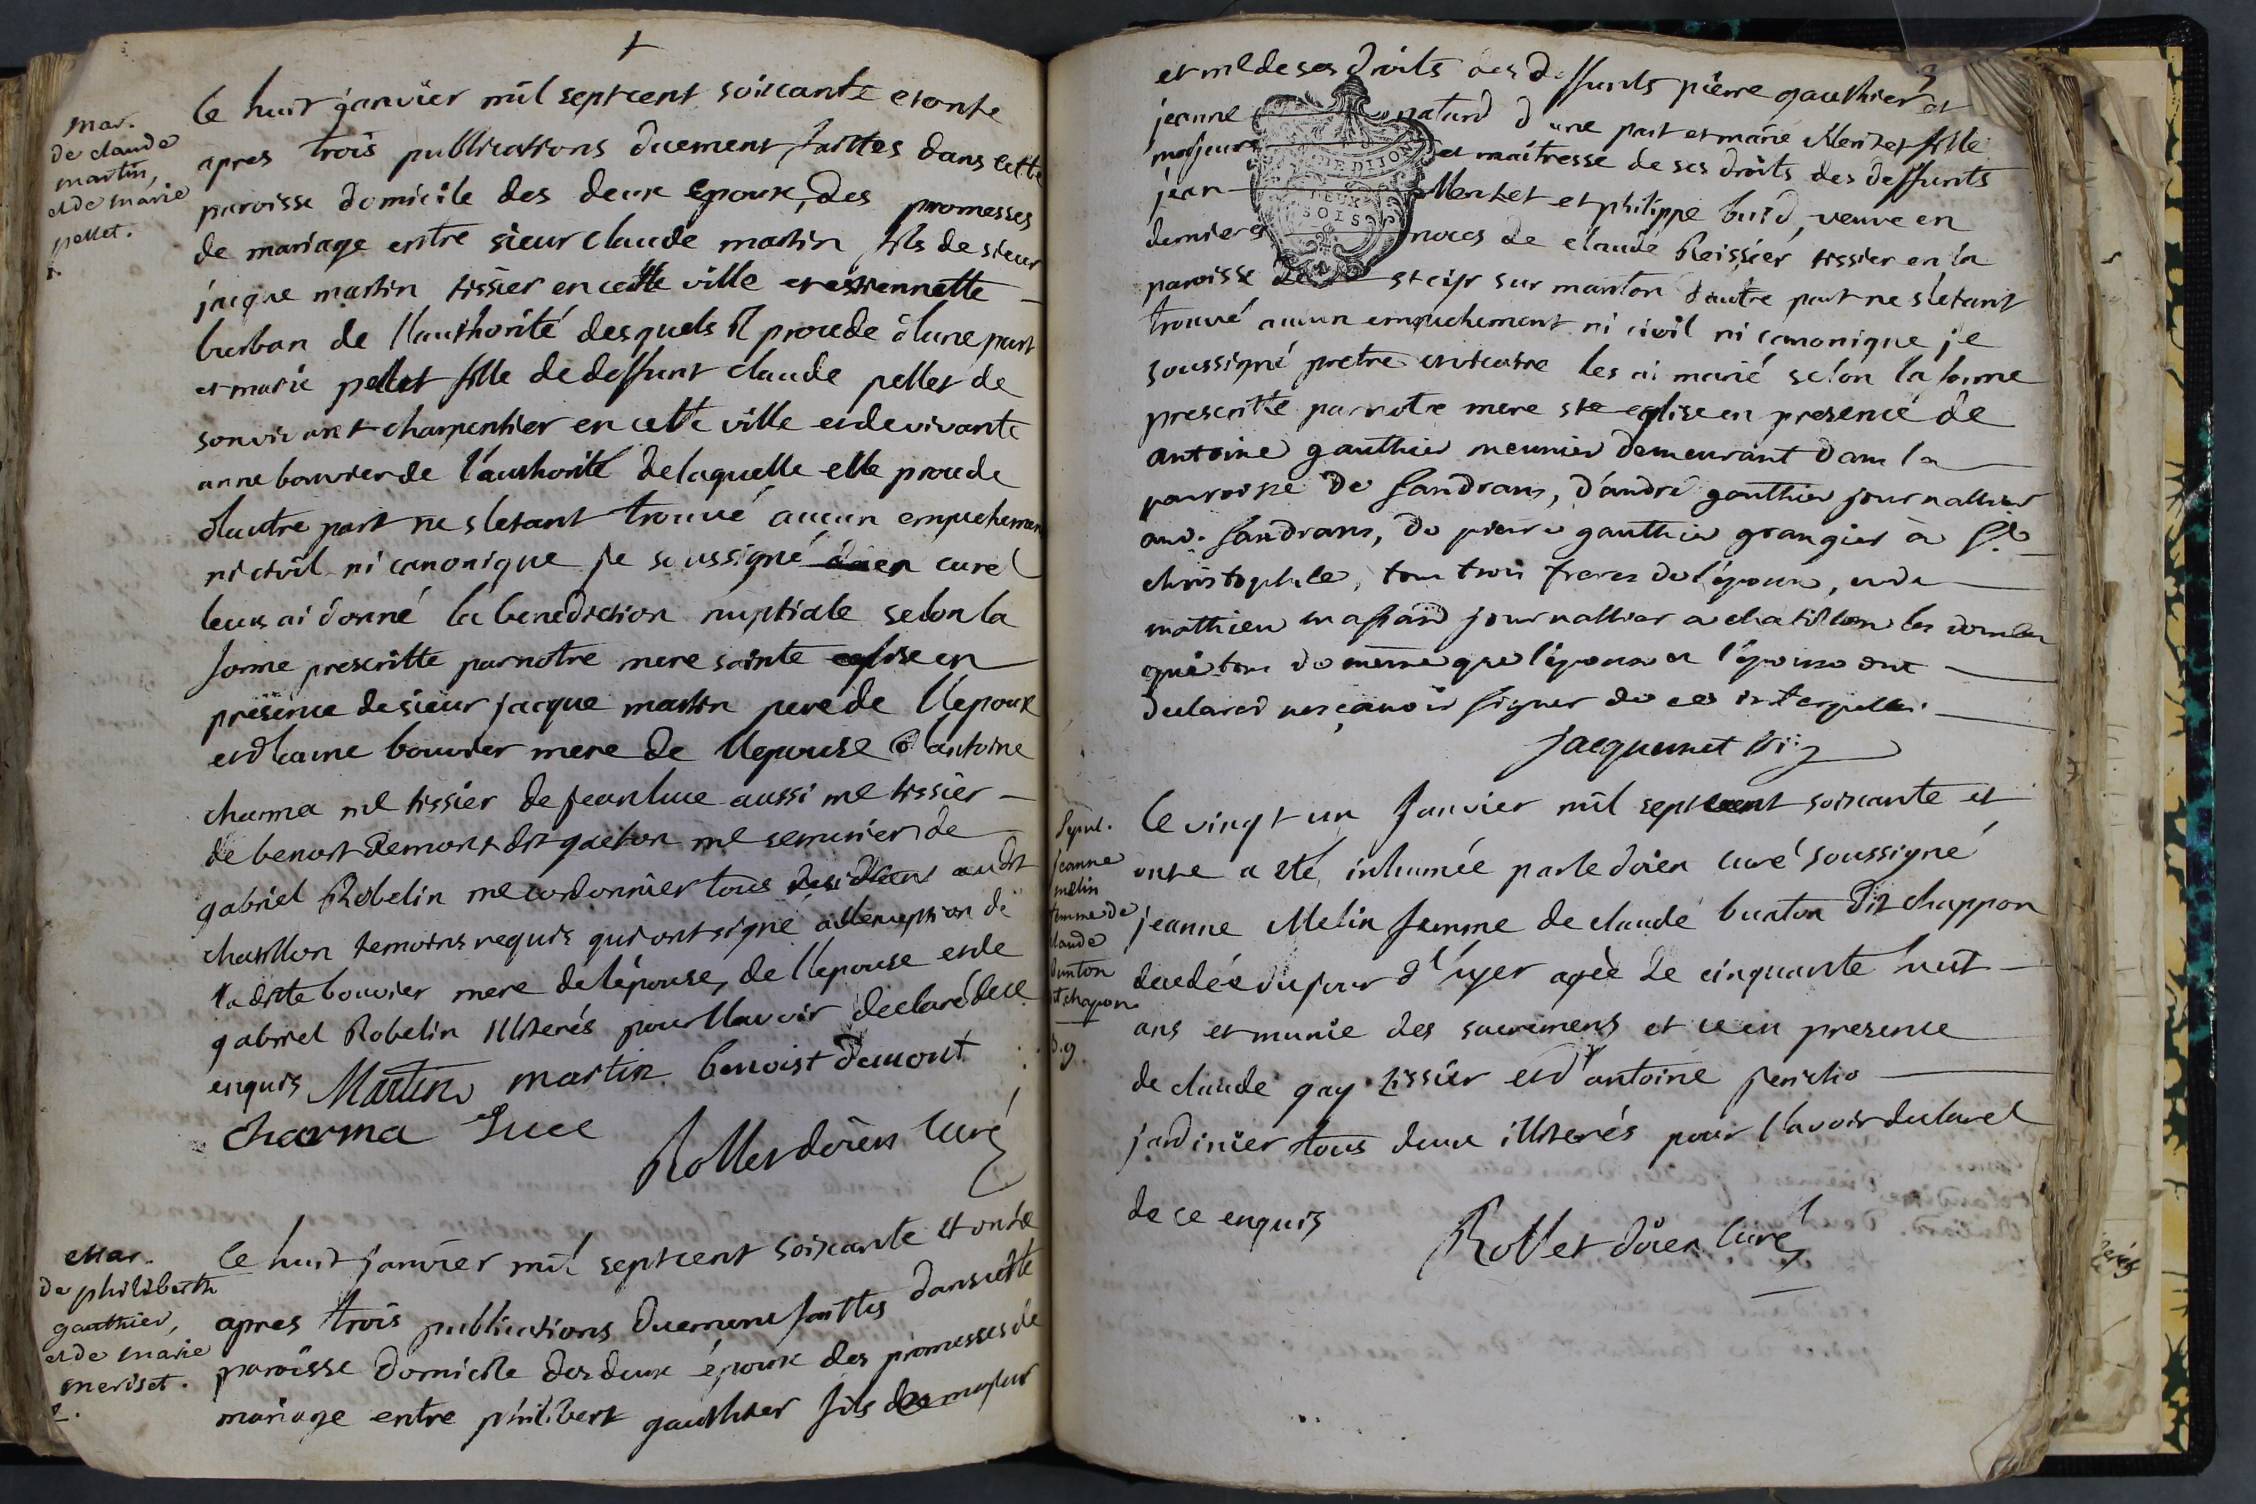 mar.
de claude
martin,
et de marie
pellet.
1.
le huit janvier mil sept cent soixante et onze
apres trois publications duement faittes dans cette
paroisse domicile des deux epoux, des promesses
de mariage entre sieur claude martin fils de sieur
jacque martin tissier en cette ville et estiennette
burban de l'authorité desquels il procede d'une part
et marie pellet fille de deffunt claude pellet de
son vivant charpentier en cette ville et de vivante
anne bouvier de l'authorité de laquelle elle procede
d'autre part ne s'etant trouvé aucun empechement
ni civil ni canonique je soussigné doien curé
leurs ai donné la benediction nuptiale selon la
forme prescritte par notre mere sainte eglise en
présence de sieur jacque martin pere de l'epoux
et d'anne bouvier mere de l'epouse d'antoine
charma me tissier de jean luce aussi me tissier
de benoit demont dit gaeton me serrurier de
gabriel Robelin me cordonnier tous residens audit
chatillon temoins requis qui ont signé a l'exception de
la ditte bouvier mere de l'épouse, de l'epouse et de
gabriel Robelin illiterés pour l'avoir declaré de ce
enquis Martin martin benoist demont
charma Luce
Rollet doien curé
Mar.
de philiberth
gauthier,
et de marie
meriset.
2.
le huit janvier mil sept cent soixante et onze
apres trois publications duement faittes dans cette
paroisse domicile des deux époux des promesses de
mariage entre philibert gauthier fils majeur
3
et me de ses droits des deffunts pierre gauthier et
jeanne d'une part et marie Merizet fille
majeure et maitresse de ses droits des deffunts
jean Merizet et philippe buid, veuve en
dernieres noces de claude Reissier tissier en la
paroisse de st cyr sur manton d'autre part ne s'etant
trouvé aucun empechement ni civil ni canonique je
soussigné pretre et vicaire les ai marié selon la forme
prescritte par notre mere ste eglise en presence de
antoine gauthier meunier demeurant dans la
parroisse de Sandrans, d'andré gauthier journallier
aud. Sandrans, de pierre gauthier granger à St
christophle, tous trois freres de l'époux, et de
mathieu massard journallier a chatillon les dombes
qui tous de même que l'epoux et l'epouse ont
declarés ne sçavoir signer de ce interpellés.
Jacquemet vic
GEN DE DIJON
DEUX
SOLS
Sepul.
jeanne
melin
femme de
claude
burton
dit chapon
3.g.
le vingt un Janvier mil sept cent soixante et
onze a été inhumée par le doien curé soussigné
jeanne Melin femme de claude burton dit chappon
decedée du jour d'hyer agée de cinquante huit
ans et munie des sacremens et ce en presence
de claude gay tissier et d'antoine jericho
jardinier tous deux illiterés pour l'avoir declaré
de ce enquis
Rollet doien curé